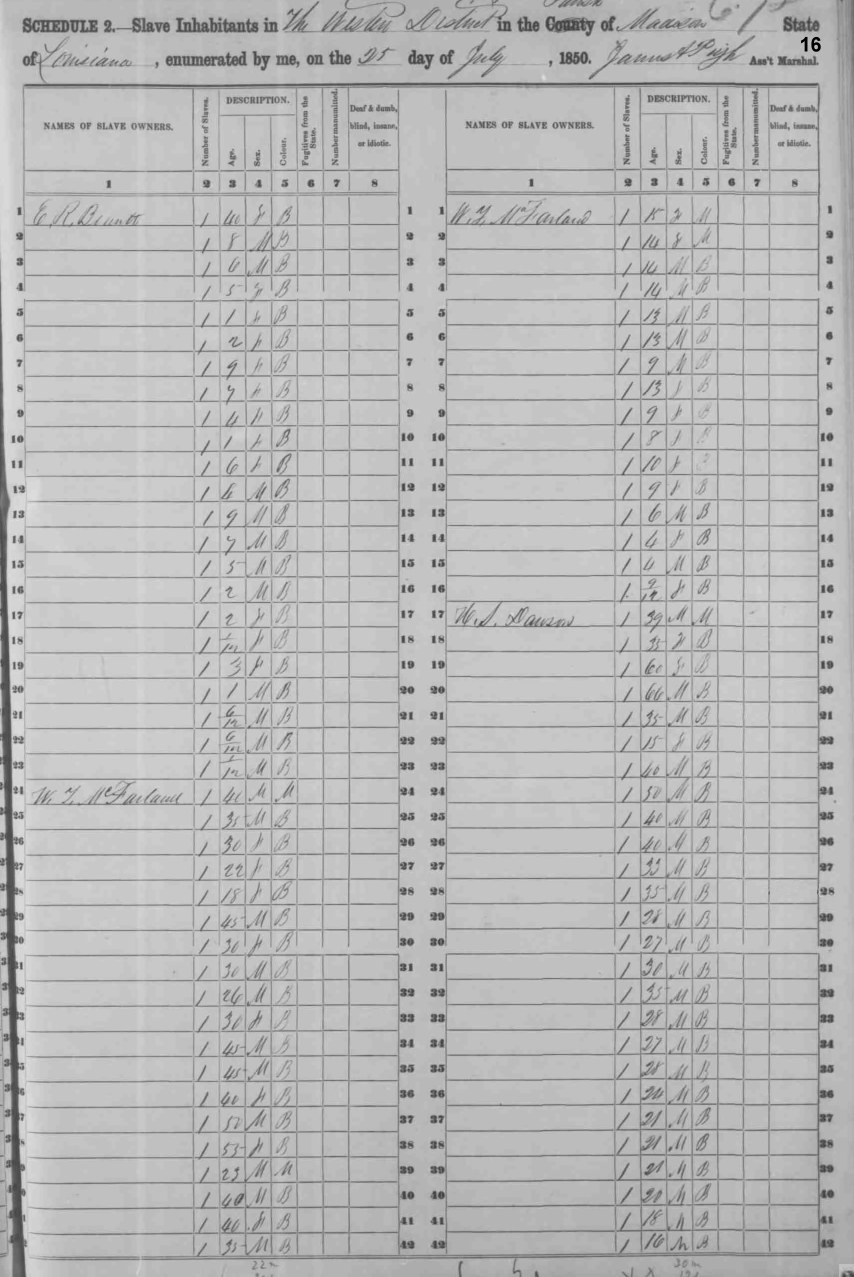 SCHEDULE 2.—Slave Inhabitants in The Western District in the County Parish of Madison State
of Louisiana, enumerated by me, on the 25 day of July, 1850. Ass't Marshal.
16
NAMES OF SLAVE OWNERS. Number of Slaves. DESCRIPTION. Age. Sex. Colour. Fugitives from the State. Number manumitted. Deaf & dumb, blind, insane, or idiotic.
1 2 3 4 5 6 7 8
1 E R. 1 40 f B 1
2 1 8 M B 2
3 1 6 M B 3
4 1 5 f B 4
5 1 1 f B 5
6 1 2 f B 6
7 1 9 f B 7
8 1 7 f B 8
9 1 4 f B 9
10 1 1 f B 10
11 1 6 f B 11
12 1 6 M B 12
13 1 9 M B 13
14 1 7 M B 14
15 1 5 M B 15
16 1 2 M B 16
17 1 2 f B 17
18 1 1/12 f B 18
19 1 3 f B 19
20 1 1 M B 20
21 1 6/12 M B 21
22 1 6/12 M B 22
23 1 1/12 M B 23
24 W. L. McFarland 1 M M 24
25 1 35 M B 25
26 1 30 f B 26
27 1 22 f B 27
28 1 18 f B 28
29 1 45 M B 29
30 1 30 f B 30
31 1 30 M B 31
32 1 26 M B 32
33 1 30 f B 33
34 1 45 M B 34
35 1 45 M B 35
36 1 40 f B 36
37 1 50 M B 37
38 1 55 f B 38
39 1 23 M M 39
40 1 40 M B 40
41 1 40 f B 41
42 1 35 M B 42
22m
NAMES OF SLAVE OWNERS. Number of Slaves. DESCRIPTION. Age. Sex. Colour. Fugitives from the State. Number manumitted. Deaf & dumb, blind, insane, or idiotic.
1 2 3 4 5 6 7 8
1 W. L. McFarland 1 15 f M 1
2 1 14 f M 2
3 1 14 M B 3
4 1 14 M B 4
5 1 13 M B 5
6 1 13 M B 6
7 1 9 M B 7
8 1 13 f B 8
9 1 9 f B 9
10 1 8 f B 10
11 1 10 f B 11
12 1 9 f B 12
13 1 6 M B 13
14 1 4 f B 14
15 1 4 M B 15
16 1 9/12 f B 16
17 H. S. Dawson 1 39 M M 17
18 1 35 f B 18
19 1 60 f B 19
20 1 66 M B 20
21 1 35 M B 21
22 1 15 f B 22
23 1 40 M B 23
24 1 50 M B 24
25 1 40 M B 25
26 1 40 M B 26
27 1 33 M B 27
28 1 35 M B 28
29 1 28 M B 29
30 1 27 M B 30
31 1 30 M B 31
32 1 35 M B 32
33 1 28 M B 33
34 1 27 M B 34
35 1 28 M B 35
36 1 M B 36
37 1 21 M B 37
38 1 21 M B 38
39 1 21 M B 39
40 1 20 M B 40
41 1 18 M B 41
42 1 16 M B 42
30m